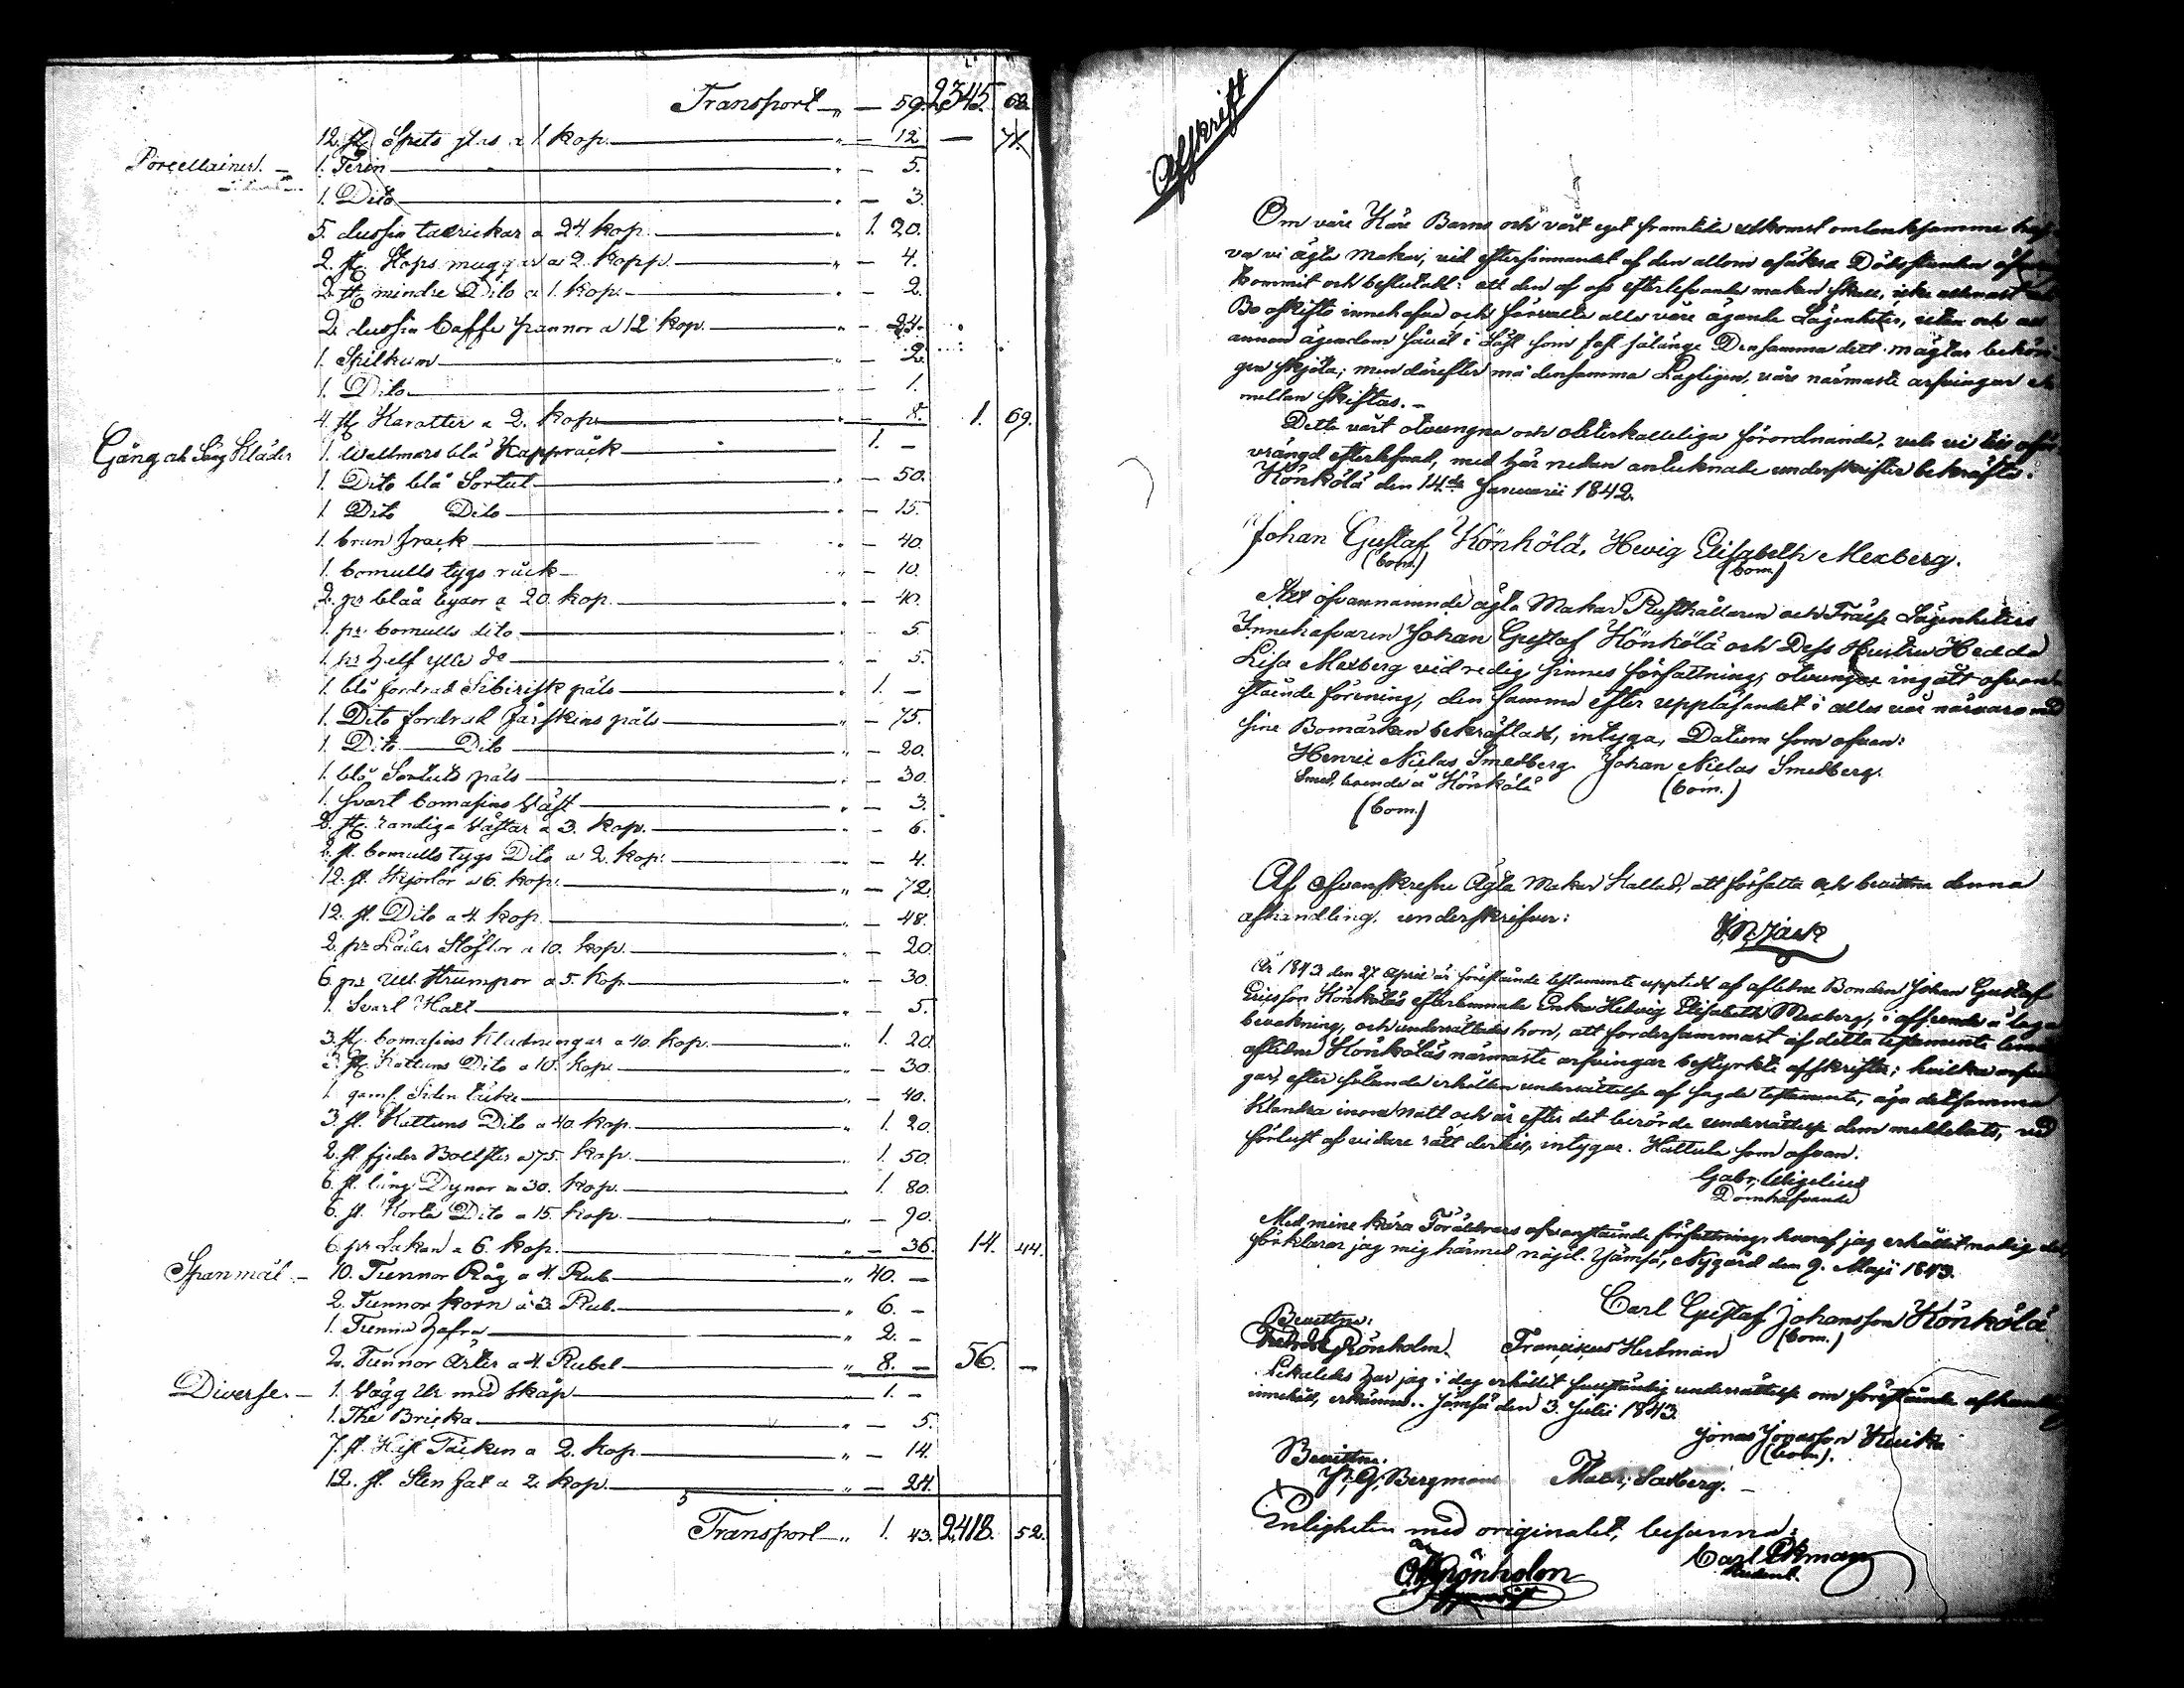 Transport — " — 59. 2,345. 68.
12. st. Spets glas a 1. kop. " — 12 — 71.
Porcellainer. — 1. Terin " — 5.
1. Dito " — 3.
5. dussin taerickar a 24. kop. " 1. 20.
2. st. Stops muggar a 2. kopp. " — 4.
2. st. mindre Dito a 1. kop. " — 2.
2. dussin Caffe pannor a 12 kop. " — 24.
1. Spilkum " — 2.
1. Dito " — 1.
4. st. Karotter a 2. kop. " — 8. 1. 69.
Gång och Säng Kläder 1. Wallmars blå Kappråck 1. —
1. Dito blå Sortut " — 50.
1 Dito Dito " — 15.
1. brun frack " — 40.
1. bomulls tygs råck " — 10.
2. pr blåå byxor a 20. kop. " — 40.
1. pr. bomulls dito " — 5.
1. pr helf ylle do " — 5.
1. blå fordrad Sibirisk päls " 1. —
1. Dito fordrad fårskins päls " — 75.
1. Dito Dito " — 20.
1. blå Sortuts päls " — 30.
1. Svart bomasins Väst " — 3.
2. st. randiga Västar a 3. kop. " — 6.
2. st. bomulls tygs Dito a 2. kop. " — 4.
12. st. Skjortor a 6. kop. " — 72.
12. st. Dito a 4. kop. " — 48.
2. pr Läder Stöflor a 10. kop. " — 20.
6. pr Ull Strumpor a 5. kop. " — 30.
1. Svart Hatt " — 5.
3. st. bomasins Kladningar a 40. kop. " 1. 20.
3. st. Kattuns Dito a 10. kop. " — 30.
1. gam. Siden täcke " — 40.
3. st. Kattuns Dito a 40. kop. " 1. 20.
2. st fjeder Bolster a 75. kop. " 1. 50.
6. st. lång Dynor a 30. kop. " 1. 80.
6. st. Korta Dito a 15. kop. " — 90.
6. pr Lakan a 6. kop. " — 36. 14. 44.
Spanmål — 10. Tunnor Råg a 4. Rub. " 40. —
2. Tunnor korn a 3. Rub. " 6. —
1. Tunna Hafra " 2. —
2. Tunnor Ärter a 4. Rubel " 8. — 56. —
Diverse. — 1. Vägg Ur med skåp " 1. —
1. The Bricka " — 5.
7. st. Täcken a 2. kop. " — 14.
12. st. Sten fat a 2. kop. " — 24.
5
Transport " 1. 43. 2,418. 52.
Afskrift
Om våre Käre Barns och vårt eget framtida utkomst omtänksamme haf-
va vi ägta makar, vid eftersinnandet af den allom osäkra Dödsstunden
kommit och beslutat: att den af oss efterlefvande makan skall, icke allenast
Bo oskifto innehafva och förvalta alla våre ägande Lägenheter, utan och all
annan ägendom såväl i Löst som fast sålänge Densamma dett mägtar behöri-
gen skjöta; men därefter må densamma Lagligen, våre närmaste arfvingar
mellan skiftas. —
Detta vårt otvungna och oåterkalleliga förordnande, vele vi
vrängd efterlefnad, med här nedan antecknade underskrifter bekräfta.
Könkölä den 14de Januarii 1842.
Johan Gustaf Könkölä, Hevig Elisabeth Mexberg.
(bom.) (bom.)
Att ofvannamnde ägta Makar Rusthållaren och Frälse Lägenheters
Innehafvaren Johan Gustaf Könkölä och Dess Hustru Hedda
Lisa Mexberg vid redig sinnes författning, otvunget ingått ofvan-
stående förening, den samma efter uppläsandet i alles vår närvaro med
sine Bomärken bekräftadt, intyga, Datum som ofvan:
Henric Niclas Smedberg. Johan Niclas Smedberg.
Smed, boende å Könkölä (bom.)
(bom.)
Af ofvanskrefne Ägta Makar Kallad, att författa och bevittna denna
afhandling, underskrifver:
År 1843 den 27 April är föreståënde testamente uppteedt af aflidne Bonden Johan Gustaf
Ericsson Könköläs efterlemnade Enka Helvig Elisabeth Mexberg, i afseende å laga
bevakning, och underrättades hon, att fordersammast af detta testamente
aflidne Könköläs närmaste arfvingar bestyrkte afskrifter; hvilka
gar, efter sålunda erhållen underrättelse af sagde testamente, äga detsamma
Klandra inom natt och år efter det berörde underrättelse dem meddelats, vid
förlust af vidare rätt dertill, intygar. Hattula som ofvan.
Gabr. Wigelius
Domhafvande
Med mine kära Föräldrars ofvanstående författning, hvaraf jag erhållit
förklarar jag mig härmed nöjd. Jämsä, Nygård den 9. Maji 1843.
Carl Gustaf Johansson Könkölä
(bom.)
Bevittna:
Grönholm. Franciscus Hertman
Likaledes har jag i dag erhållit fullständig underrättelse om förestående
innehåll, erkännes. Jämsä den 3. Julii 1843.
Jonas Jonasson
(bom.)
Bevittna:
Bergman Saxberg.
Enligheten med originalet, besanna:
Grönholm Carl Ekman
Student.